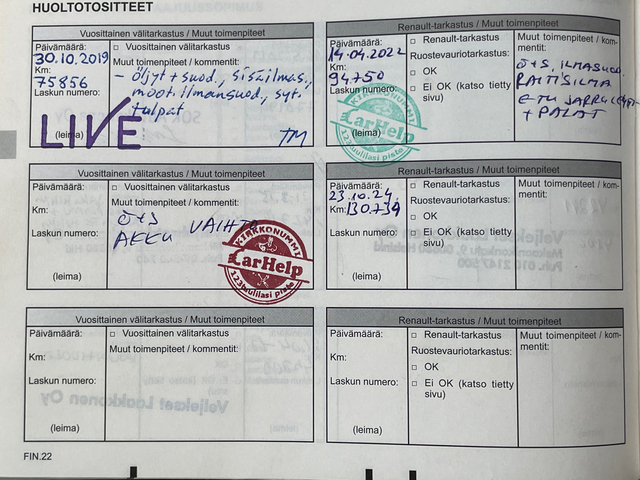 HUOLTOTOSITTEET
Vuosittainen välitarkastus / Muut toimenpiteet
Päivämäärä:
30.10.2019
Km:
75856
Laskun numero:
(leima)
LIVE
□ Vuosittainen välitarkastus
Muut toimenpiteet / kommentit:
- öljyt + suod, sisäilmas,
moot.ilmansuod, syt.
tulpat
TM
Renault-tarkastus / Muut toimenpiteet
Päivämäärä:
14.04.2022
Km:
94750
Laskun numero:
(leima)
□ Renault-tarkastus
Ruostevauriotarkastus:
□ OK
□ Ei OK (katso tietty
sivu)
Muut toimenpiteet / kom-
mentit:
Ö+S, ILMASUOD.
RAITISILMA
ETU JARRULEVYT
+ PALAT
KIRKKONUMMI
CarHelp
123autilasi piste
Vuosittainen välitarkastus / Muut toimenpiteet
Päivämäärä:
Km:
Laskun numero:
(leima)
□ Vuosittainen välitarkastus
Muut toimenpiteet / kommentit:
Ö+S
AKKU VAIHTO
KIRKKONUMMI
CarHelp
Renault-tarkastus / Muut toimenpiteet
Päivämäärä:
23.10.24
Km:
130.734
Laskun numero:
(leima)
□ Renault-tarkastus
Ruostevauriotarkastus:
□ OK
□ Ei OK (katso tietty
sivu)
Muut toimenpiteet / kom-
mentit:
Vuosittainen välitarkastus / Muut toimenpiteet
Päivämäärä:
Km:
Laskun numero:
(leima)
□ Vuosittainen välitarkastus
Muut toimenpiteet / kommentit:
Renault-tarkastus / Muut toimenpiteet
Päivämäärä:
Km:
Laskun numero:
(leima)
□ Renault-tarkastus
Ruostevauriotarkastus:
□ OK
□ Ei OK (katso tietty
sivu)
Muut toimenpiteet / kom-
mentit:
FIN.22